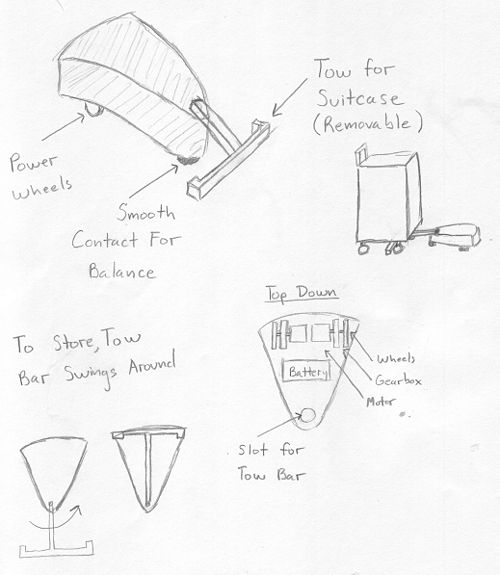 Tow for
Suitcase
(Removable)
Power
Wheels
Smooth
Contact For
Balance
Top Down
To Store, Tow
Bar Swings Around
Battery
Wheels
Gearbox
Motor
Slot for
Tow Bar